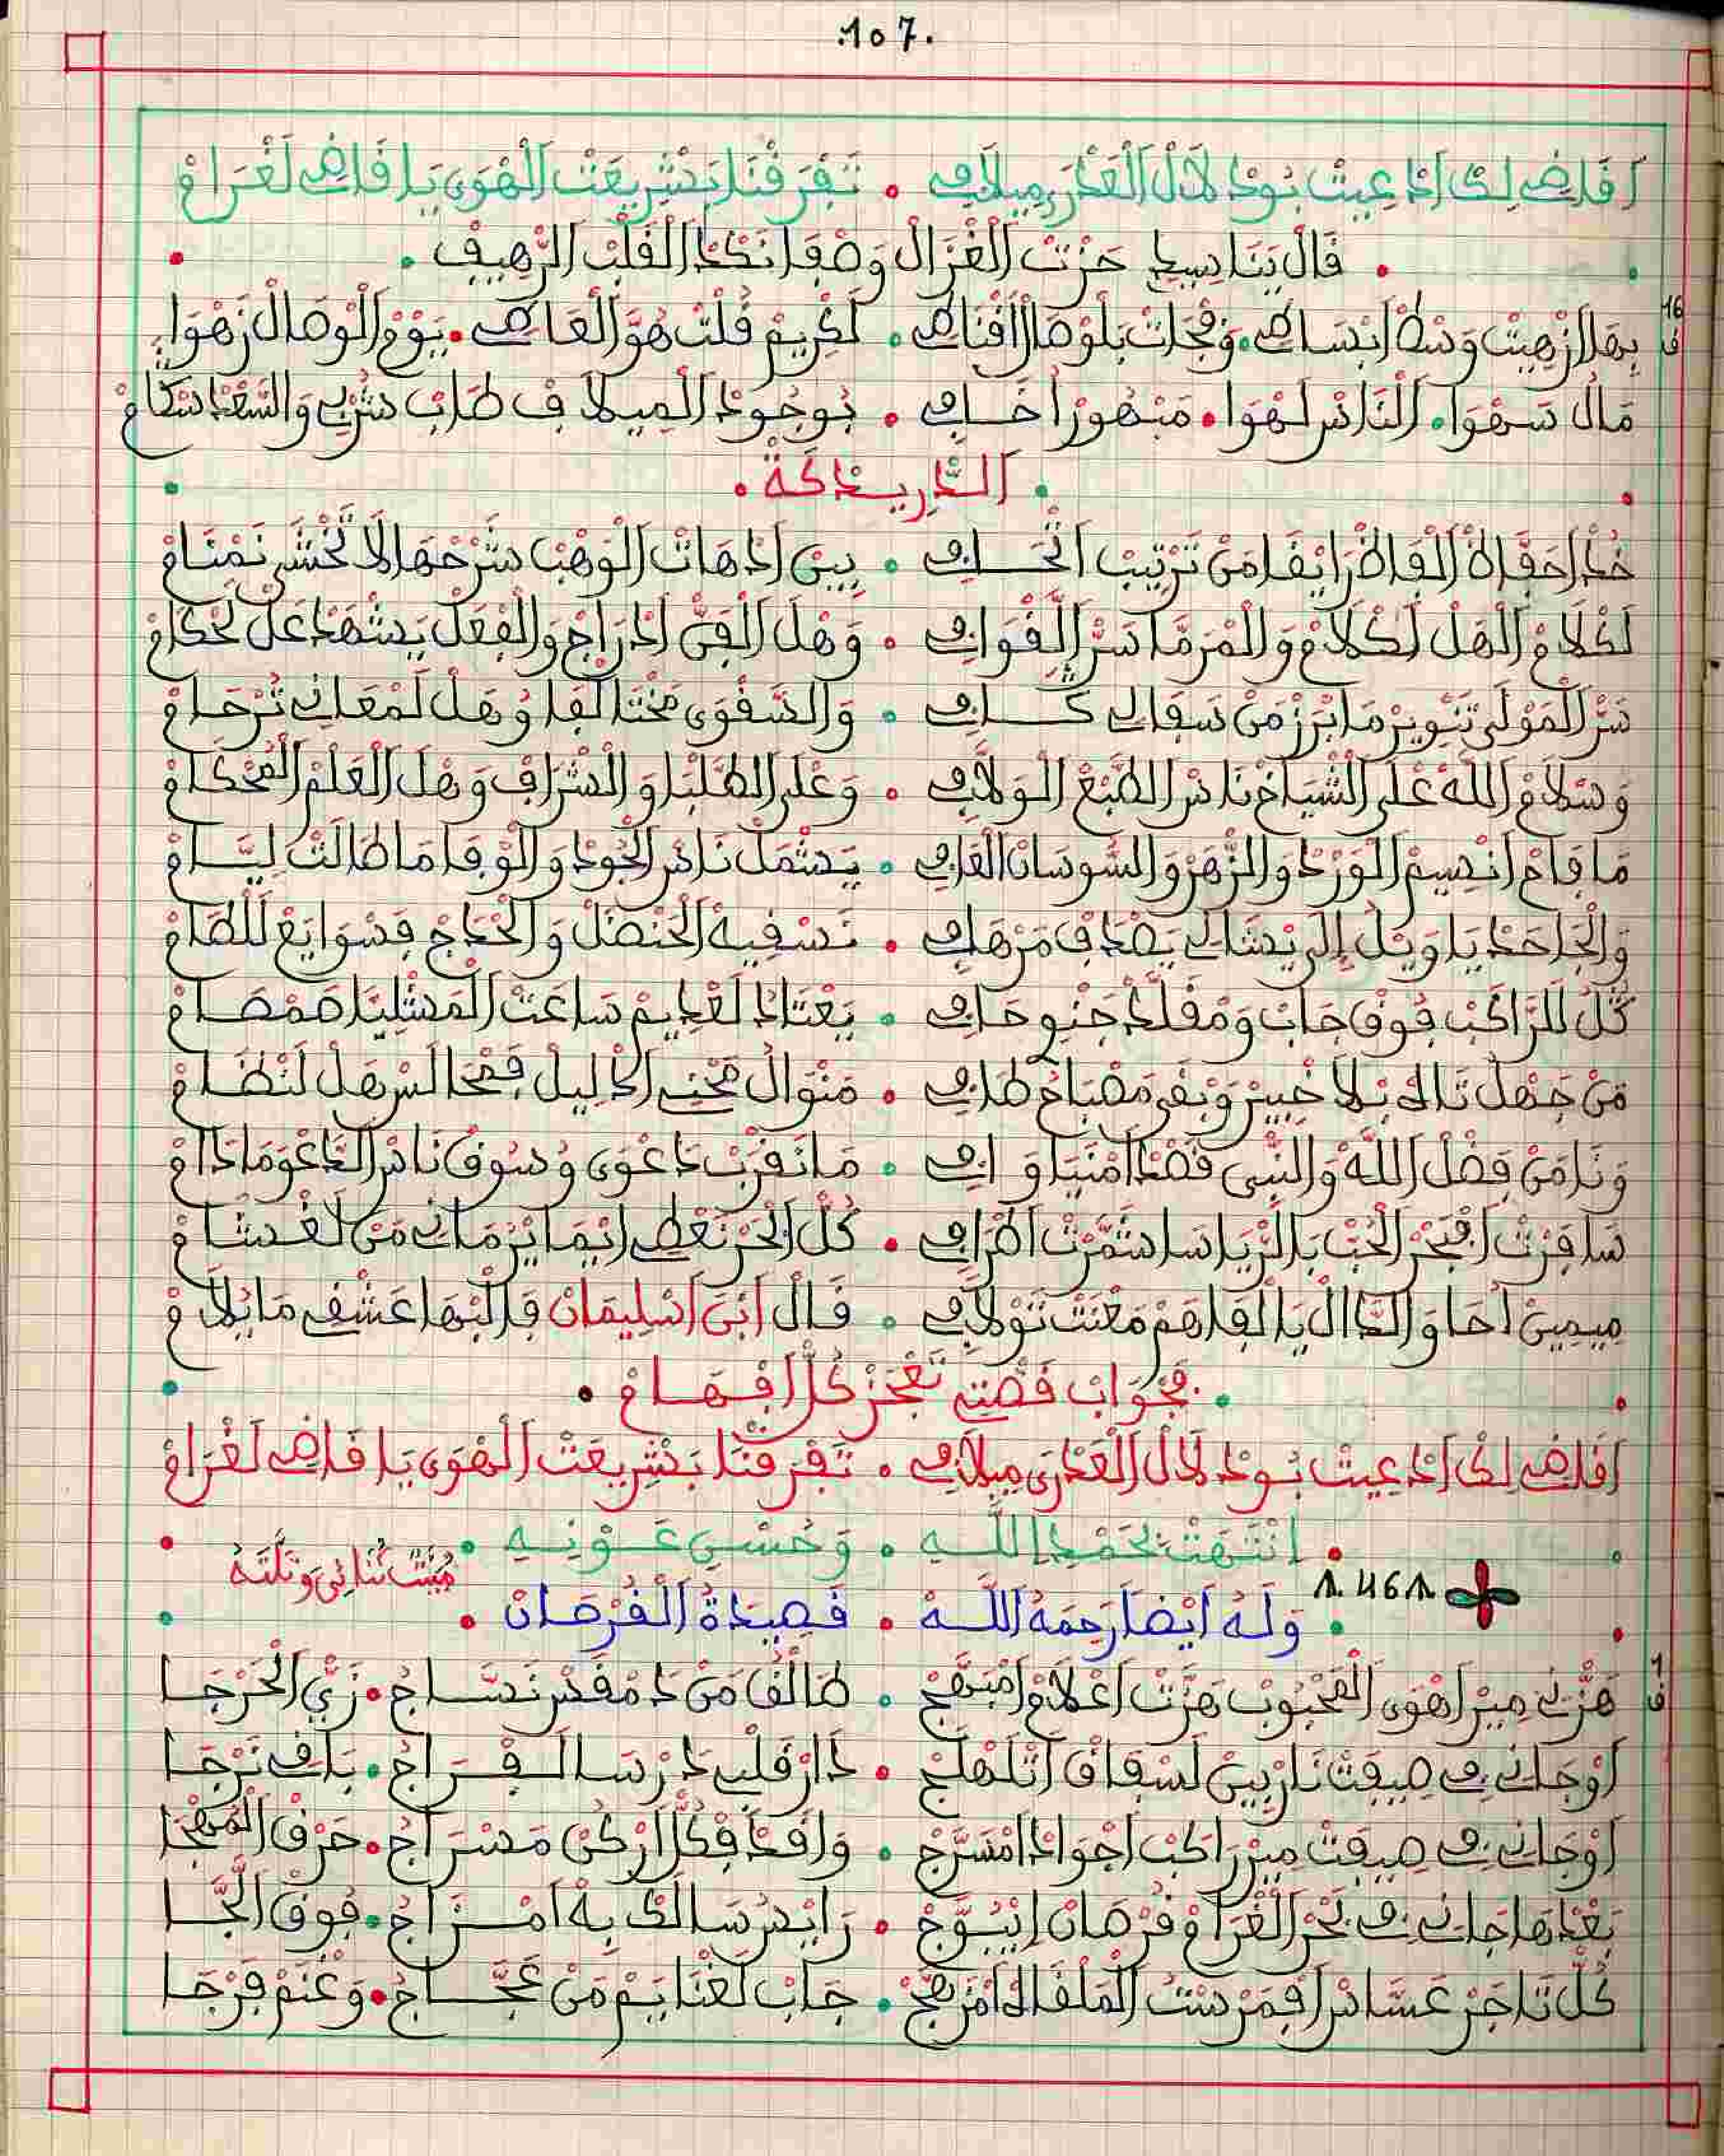 .107.
أقاضي لك ادعيت بود لال العذرى ميلافي • تفرقنا بشريعت الهوى يا قاضي لغرام
• قال يناسيط حزت الغزال وصفا نكد القلب الرهيف •
16 ف
بها لزهيت وسط ابساطي • وفجات بلوصال اقناطي • لكريم قلت هو العاطي • يوم الوصال زهوا
مال سهوا • الناس لهوا • مبهور اخافي • بوجود الميلاف طاب شربي والسعد سكام
• الدريدكة •
خد احفاظ الفاظ رايقا من ترتيب اتحافي • بين ادهات الوهب شرحها لا تخشى نمنام
لكلام اهل لكلام والمرما سر القوافي • وهل الفن ادراج والفعل يشهد عل لحكام
سر المولى تنوير ما برز من سقالي كافي • والصفوى مختالفا وهل لمعاني ترحام
وسلام الله على الشياخ ناس الطبع الولافي • وعلى الطلبا والشراف وهل العلم المحكام
ما فاح انسيم الورد والزهر والسوسان الغافي • يشمل ناس الجود والوفا ما طالت ليام
والجاحد يا ويل إلى يشالي يصادف مرهافي • نسقيه الحنضل والحداج فسوايع للطام
كل للراكب فوق جاب ومقلد جنوحافي • يعتاد لغديم ساعت المشليا صمصام
من جهل تالف بلا خبير وبقى مصباح طافي • منوال محني الدليل فمحالس هل لنظام
ونا من فضل الله والنبي قصد امنيا وافي • ما نقرب دعوى وسوق ناس الدعوما دام
سافرت افبحر الحب بالريا سا شمرت اطرافي • كل ابحر نعطي ايما يزماني من لغشام
ميمين احا والدال يا الفاهم معنت تولافي • قال ابن اسليمان فالبها عشقي ما يلام
• فجواب قصتي تعجز كل افهام •
أقاضي لك ادعيت بود لال العذرى ميلافي • تفرقنا بشريعت الهوى يا قاضي لغرام
• انتهت بحمد الله • وحسن عونه •
مبيت ثنائي وتلته
• وله أيضا رحمه الله • قصيدة الفرصان •
1 ف
هزني مير اهوى المحبوب هزت اعلام امبهج • طالق من د مقدر نساج • زي الحرجا
أوجاني في صيفت نار بين لسقاق اتلهلج • دار قلبي د رسا لفراج • بافي نرجا
أوجاني في صيفت مير راكب اجواد امسرج • وافد فكل اركن مسراج • حرق المهجا
بعدها جاني في بحر الغرام فرصان ايبوج • رايس سالك به امزاج • فوق الجا
كل تاجر عساس افمرست الملقا لامزهج • جاب لغنايم من عجاج • وغنم فرجا